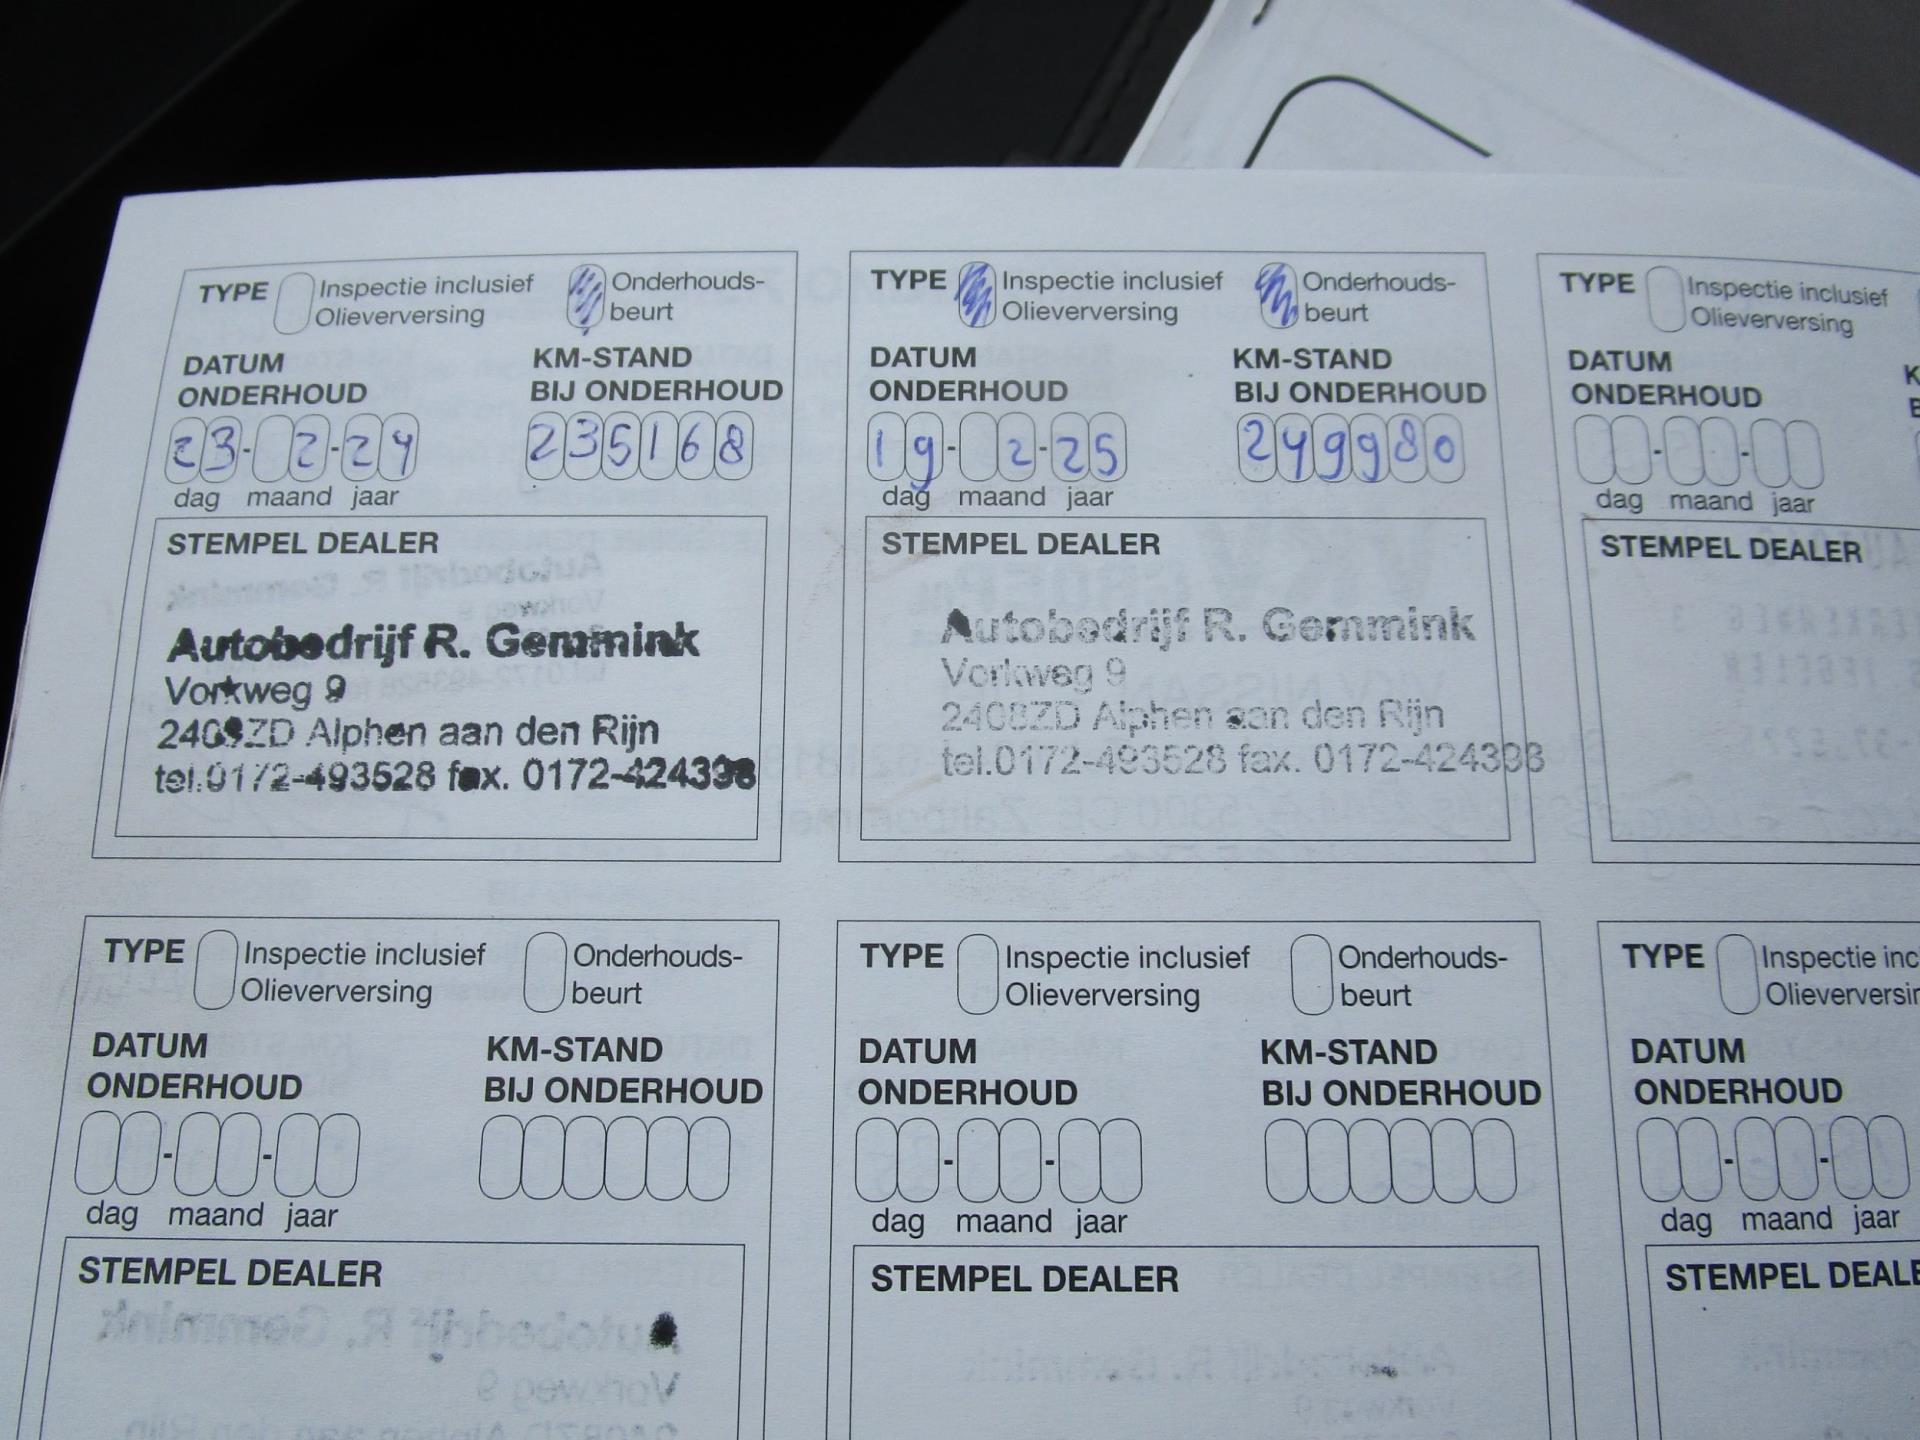 TYPE Inspectie inclusief Olieverversing Onderhouds-beurt
DATUM ONDERHOUD KM-STAND BIJ ONDERHOUD
23- 2-24 235168
dag maand jaar
STEMPEL DEALER
Autobedrijf R. Gemmink
Vorkweg 9
2408ZD Alphen aan den Rijn
tel.0172-493528 fax. 0172-424398
TYPE Inspectie inclusief Olieverversing Onderhouds-beurt
DATUM ONDERHOUD KM-STAND BIJ ONDERHOUD
19- 2-25 249980
dag maand jaar
STEMPEL DEALER
Autobedrijf R. Gemmink
Vorkweg 9
2408ZD Alphen aan den Rijn
tel.0172-493528 fax. 0172-424398
TYPE Inspectie inclusief Olieverversing
DATUM ONDERHOUD
dag maand jaar
STEMPEL DEALER
TYPE Inspectie inclusief Olieverversing Onderhouds-beurt
DATUM ONDERHOUD KM-STAND BIJ ONDERHOUD
dag maand jaar
STEMPEL DEALER
TYPE Inspectie inclusief Olieverversing Onderhouds-beurt
DATUM ONDERHOUD KM-STAND BIJ ONDERHOUD
dag maand jaar
STEMPEL DEALER
TYPE Inspectie inc Olieverversin
DATUM ONDERHOUD
dag maand jaar
STEMPEL DEALE